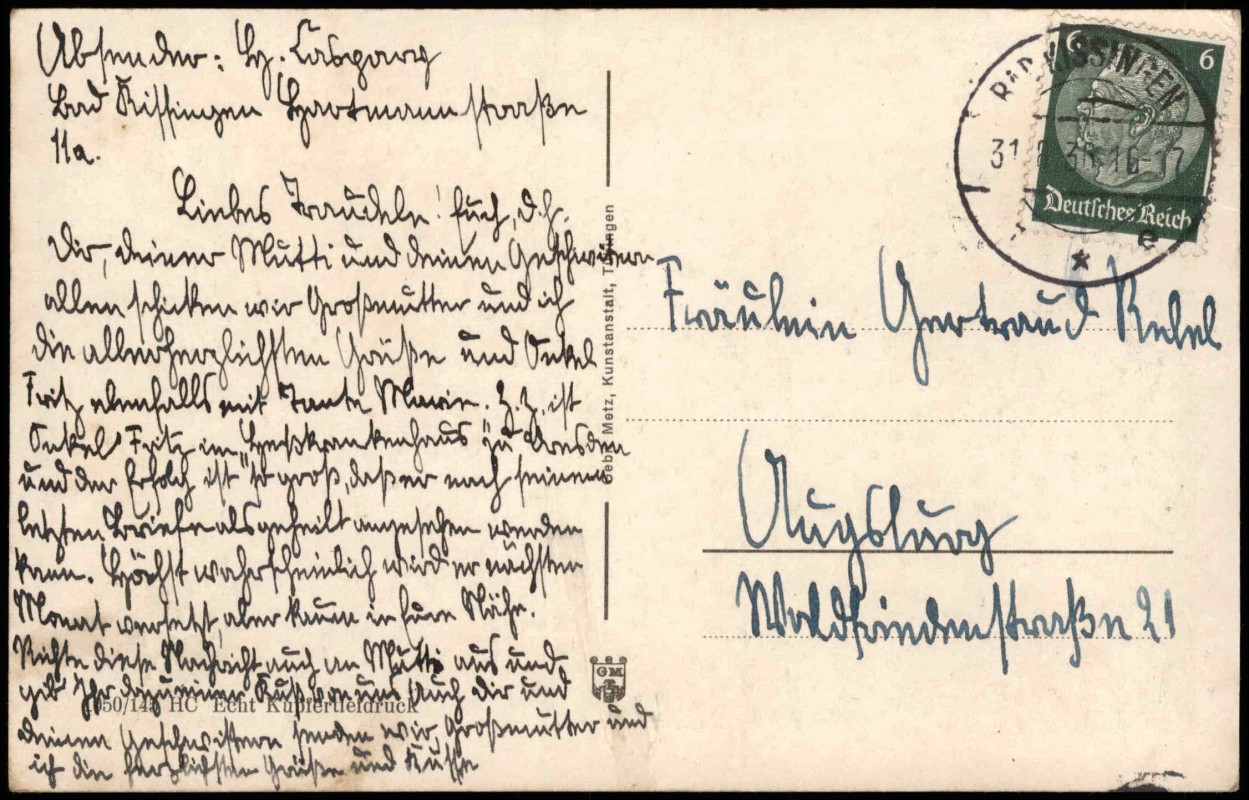 Absender: H. Caspary
Bad Kissingen Hartmannstraße
11a.
Liebes Traudele! Euch, d.h.
Dir, deiner Mutti und deinen Geschwistern
allen schicken wir Großmutter und ich
die allerherzlichsten Grüße und Onkel
Fritz ebenfalls mit Tante Marie. Z. Z. ist
Onkel Fritz im Heßkrankenhaus zu Dresden
und der Erfolg ist so groß, daß er nach seinem
letzten Briefe als geheilt angesehen werden
kann. Höchst wahrscheinlich wird er nächsten
Monat versetzt, aber kaum in Eure Nähe.
Richte diese Nachricht auch an Mutti aus und
gib Ihr dazu einen Kuß von uns. Auch Dir und
deinen Geschwistern senden wir Großmutter und
ich die herzlichsten Grüße und Küsse
1050/145 HC Echt Kupfertiefdruck
Gebr. Metz, Kunstanstalt, Tübingen
GM
BAD KISSINGEN
31 38 16-17
e
6 6
Deutsches Reich
Fräulein Gertraud Rebel
Augsburg
Waldfriedenstraße 21